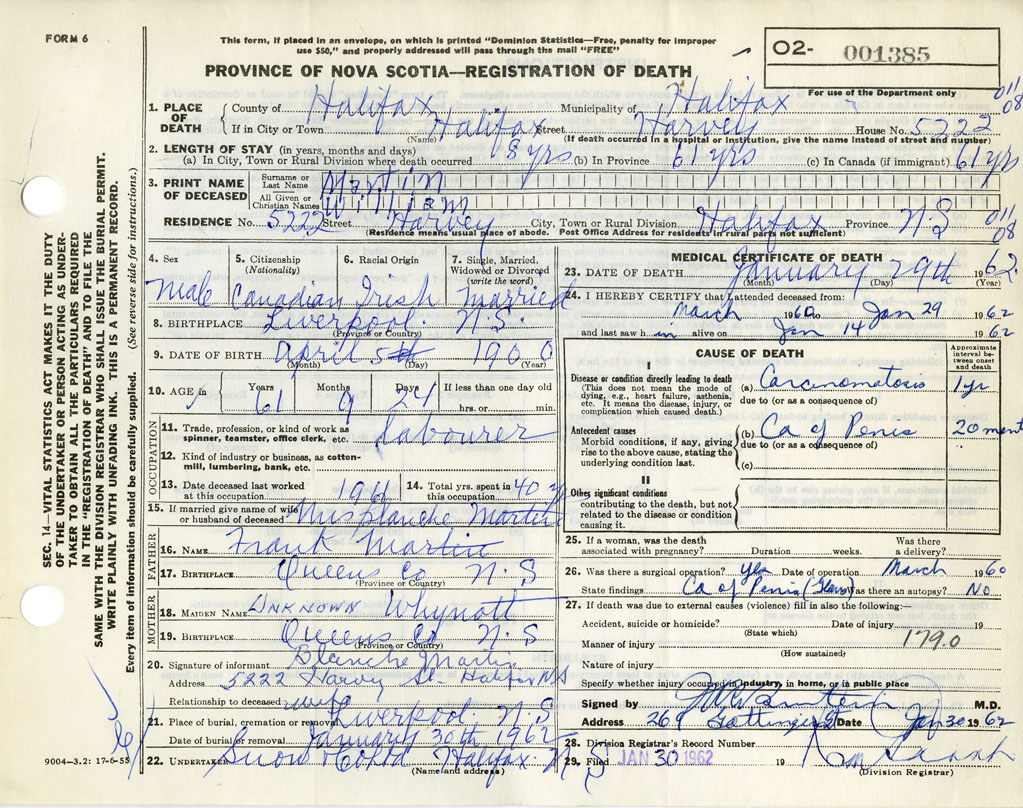 FORM 6
This form, if placed in an envelope, on which is printed "Dominion Statistics—Free, penalty for improper
use $50," and properly addressed will pass through the mail "FREE"
PROVINCE OF NOVA SCOTIA—REGISTRATION OF DEATH
O2- 001385
For use of the Department only
011
08
1. PLACE OF DEATH { County of Halifax Municipality of Halifax
If in City or Town Halifax Street Harvey House No. 5222
(Name) (If death occurred in a hospital or institution, give the name instead of street and number)
2. LENGTH OF STAY (in years, months and days)
(a) In City, Town or Rural Division where death occurred 18 yrs (b) In Province 61 yrs (c) In Canada (if immigrant) 61 yrs
3. PRINT NAME OF DECEASED { Surname or Last Name Martin
All Given or Christian Names William
RESIDENCE No. 5222 Street Harvey City, Town or Rural Division Halifax Province N.S
(Residence means usual place of abode. Post Office Address for residents in rural parts not sufficient)
011
08
4. Sex 5. Citizenship (Nationality) 6. Racial Origin 7. Single, Married, Widowed or Divorced (write the word)
Male Canadian Irish Married
8. BIRTHPLACE Liverpool. N.S.
(Province or Country)
9. DATE OF BIRTH April 5th 1900
(Month) (Day) (Year)
10. AGE in Years 61 Months 9 Days 24 If less than one day old
hrs. or min.
OCCUPATION
11. Trade, profession, or kind of work as spinner, teamster, office clerk, etc. Labourer
12. Kind of industry or business, as cotton-mill, lumbering, bank, etc.
13. Date deceased last worked at this occupation 1961 14. Total yrs. spent in this occupation 40 yrs
15. If married give name of wife or husband of deceased Mrs Blanche Martin
FATHER
16. NAME Frank Martin
17. BIRTHPLACE Queens Co N.S
(Province or Country)
MOTHER
18. MAIDEN NAME Unknown Whynott
19. BIRTHPLACE Queens Co N.S
(Province or Country)
20. Signature of informant Blanche Martin
Address 5222 Harvey St. Halifax NS
Relationship to deceased wife
21. Place of burial, cremation or removal Liverpool. N.S
Date of burial or removal January 30th 1962
22. UNDERTAKER Snow + Co Ltd Halifax. N.S
(Name and address)
9004—3.2: 17-6-58
MEDICAL CERTIFICATE OF DEATH
23. DATE OF DEATH January 29th 1962.
(Month) (Day) (Year)
24. I HEREBY CERTIFY that I attended deceased from:
March 1960 to Jan 29 1962
and last saw h im alive on Jan 14 1962
CAUSE OF DEATH
Approximate interval between onset and death
I
Disease or condition directly leading to death
(This does not mean the mode of dying, e.g., heart failure, asthenia, etc. It means the disease, injury, or complication which caused death.)
(a) Carcinomatosis 1 yr
due to (or as a consequence of)
Antecedent causes
Morbid conditions, if any, giving rise to the above cause, stating the underlying condition last.
(b) Ca of Penis 20 month
due to (or as a consequence of)
(c)
II
Other significant conditions
contributing to the death, but not related to the disease or condition causing it.
25. If a woman, was the death associated with pregnancy? Duration weeks. Was there a delivery?
26. Was there a surgical operation? yes Date of operation March 1960
State findings Ca of Penis Was there an autopsy? No
27. If death was due to external causes (violence) fill in also the following:—
Accident, suicide or homicide? Date of injury 19
(State which)
Manner of injury 179.0
(How sustained)
Nature of injury
Specify whether injury occurred in industry, in home, or in public place
Signed by M.D.
Address 269 Gottingen St Date Jan 30 1962
28. Division Registrar's Record Number
29. Filed JAN 30 1962 19
(Division Registrar)
SEC. 14—VITAL STATISTICS ACT MAKES IT THE DUTY
OF THE UNDERTAKER OR PERSON ACTING AS UNDER-
TAKER TO OBTAIN ALL THE PARTICULARS REQUIRED
IN THE "REGISTRATION OF DEATH" AND TO FILE THE
SAME WITH THE DIVISION REGISTRAR WHO SHALL ISSUE THE BURIAL PERMIT.
WRITE PLAINLY WITH UNFADING INK. THIS IS A PERMANENT RECORD.
Every item of information should be carefully supplied. (See reverse side for instructions.)